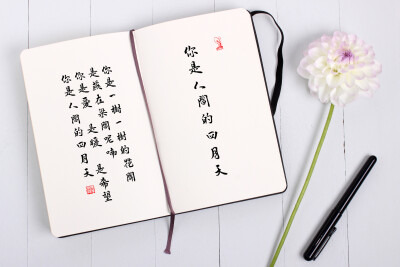 你是人間的四月天
你是一樹一樹的花開
是燕在梁間呢喃
你是愛 是暖 是希望
你是人間的四月天